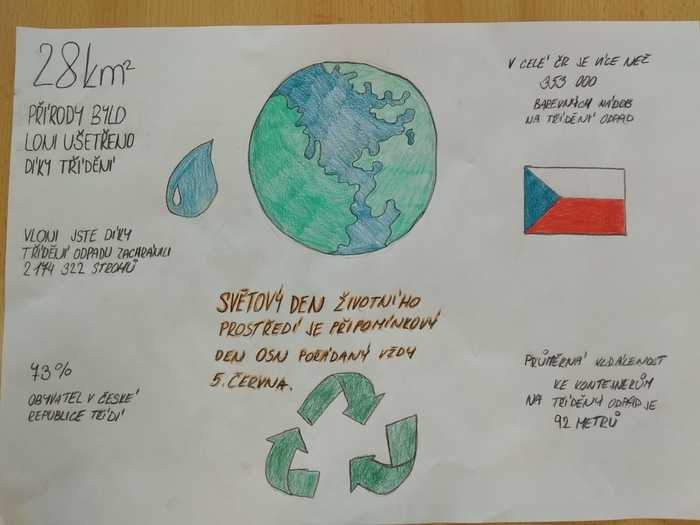 28km²
PŘÍRODY BYLO
LONI UŠETŘENO
DÍKY TŘÍDĚNÍ
V CELÉ ČR JE VÍCE NEŽ
353 000
BAREVNÝCH NÁDOB
NA TŘÍDĚNÍ ODPAD
VLONI JSTE DÍKY
TŘÍDĚNÍ ODPADU ZACHRÁNILI
2 174 322 STROMŮ
SVĚTOVÝ DEN ŽIVOTNÍHO
PROSTŘEDÍ JE PŘIPOMÍNKOVÝ
DEN OSN POŘÁDANÝ VŽDY
5. ČERVNA.
73%
OBYVATEL V ČESKÉ
REPUBLICE TŘÍDÍ
PRŮMĚRNÁ VZDÁLENOST
KE KONTEJNERŮM
NA TŘÍDĚNÝ ODPAD JE
92 METRŮ